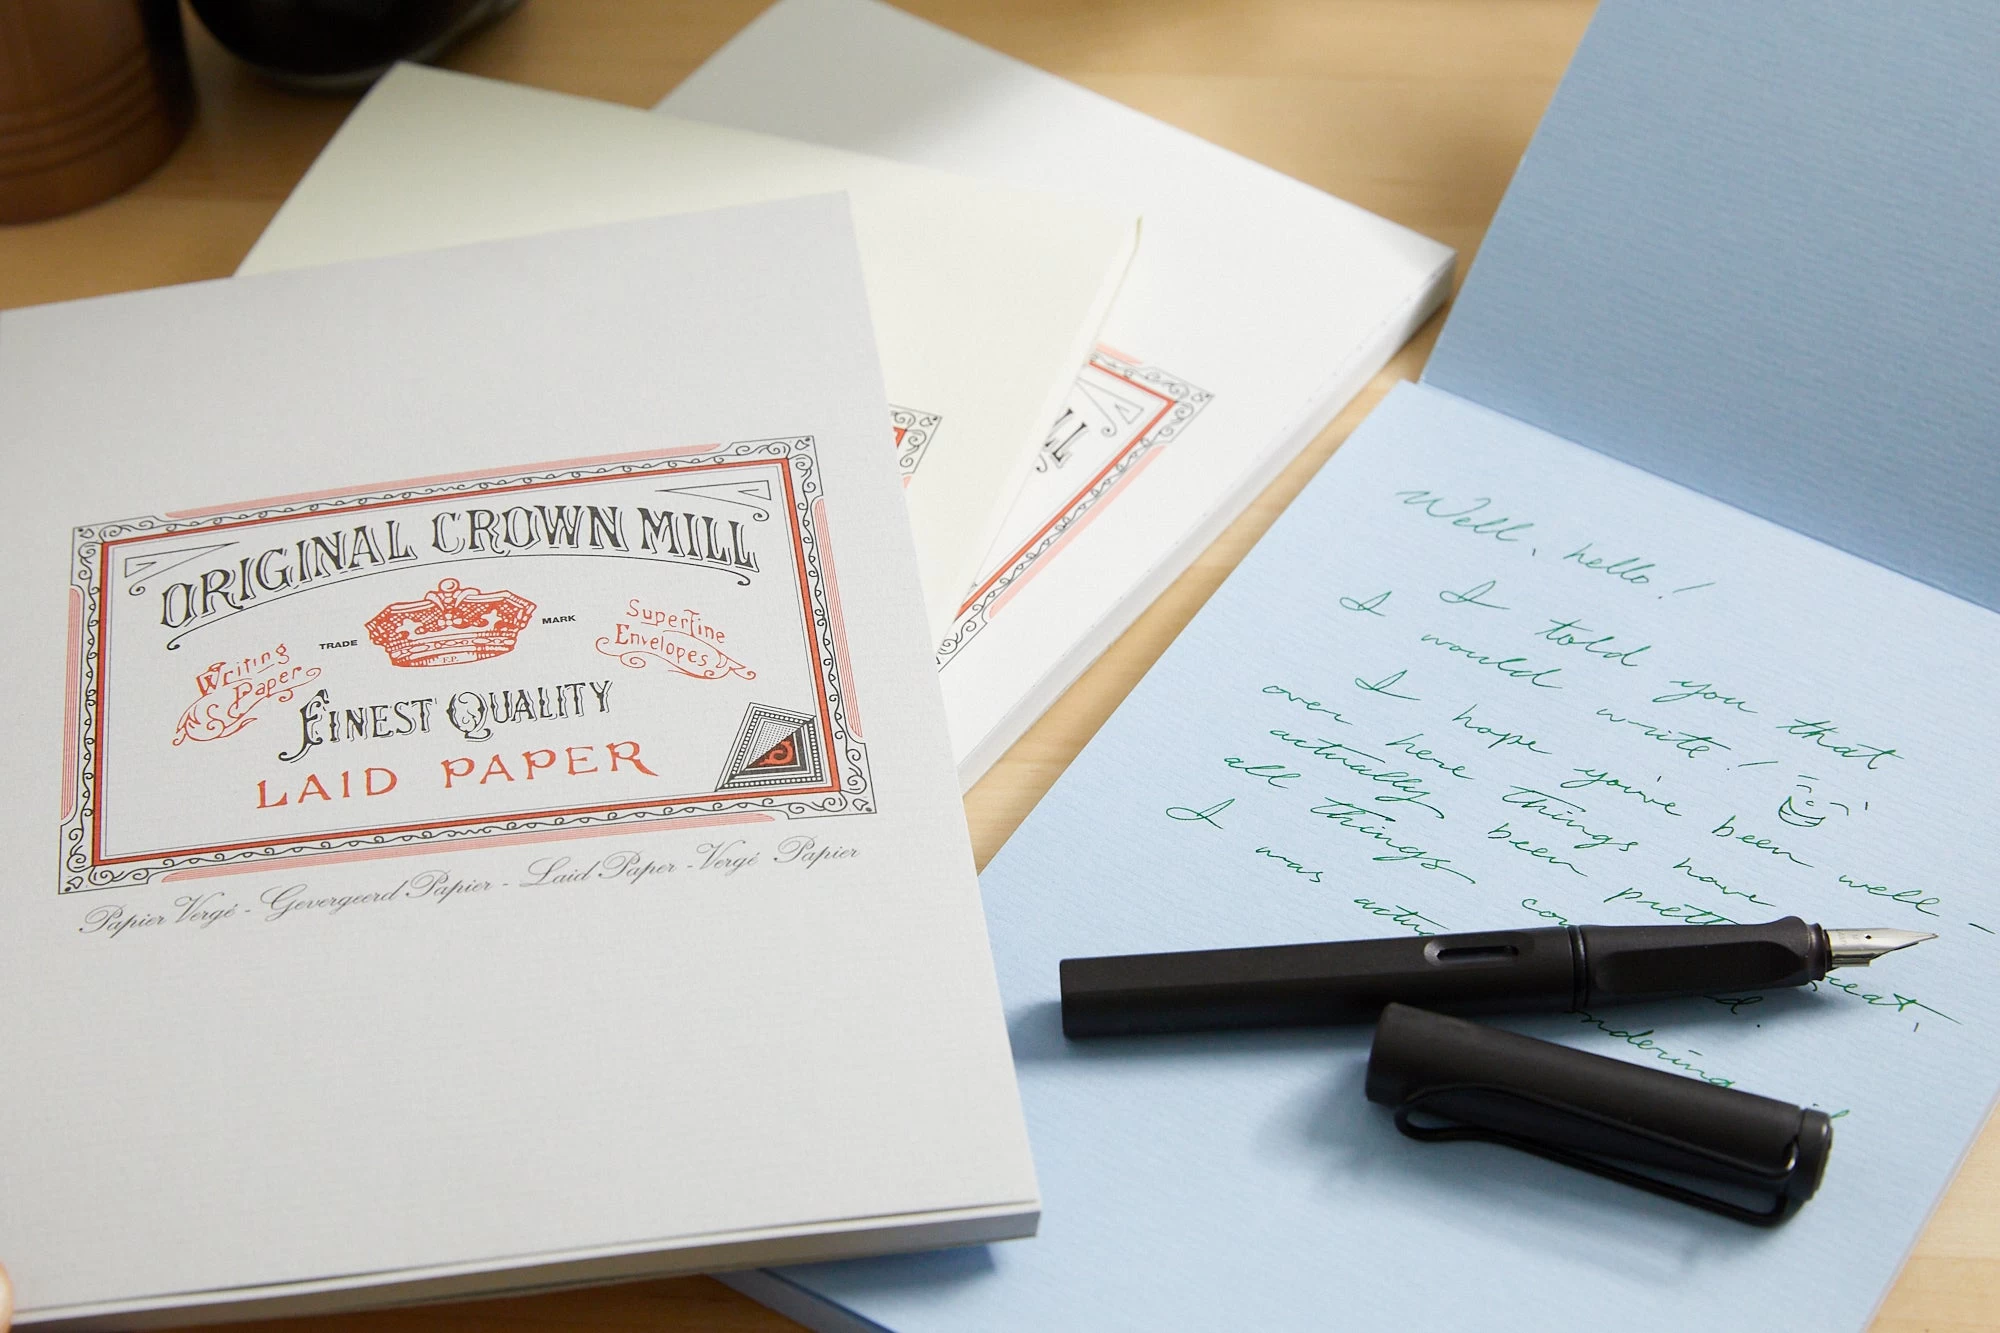 ORIGINAL CROWN MILL
TRADE MARK
Writing
Paper
Superfine
Envelopes
F.P.
FINEST QUALITY
LAID PAPER
Papier Vergé - Gevergeerd Papier - Laid Paper - Vergé Papier
ILL
Well, hello!
I told you that
I would write!
I hope you've been well -
over here things have
actually been pretty great,
all things
I was